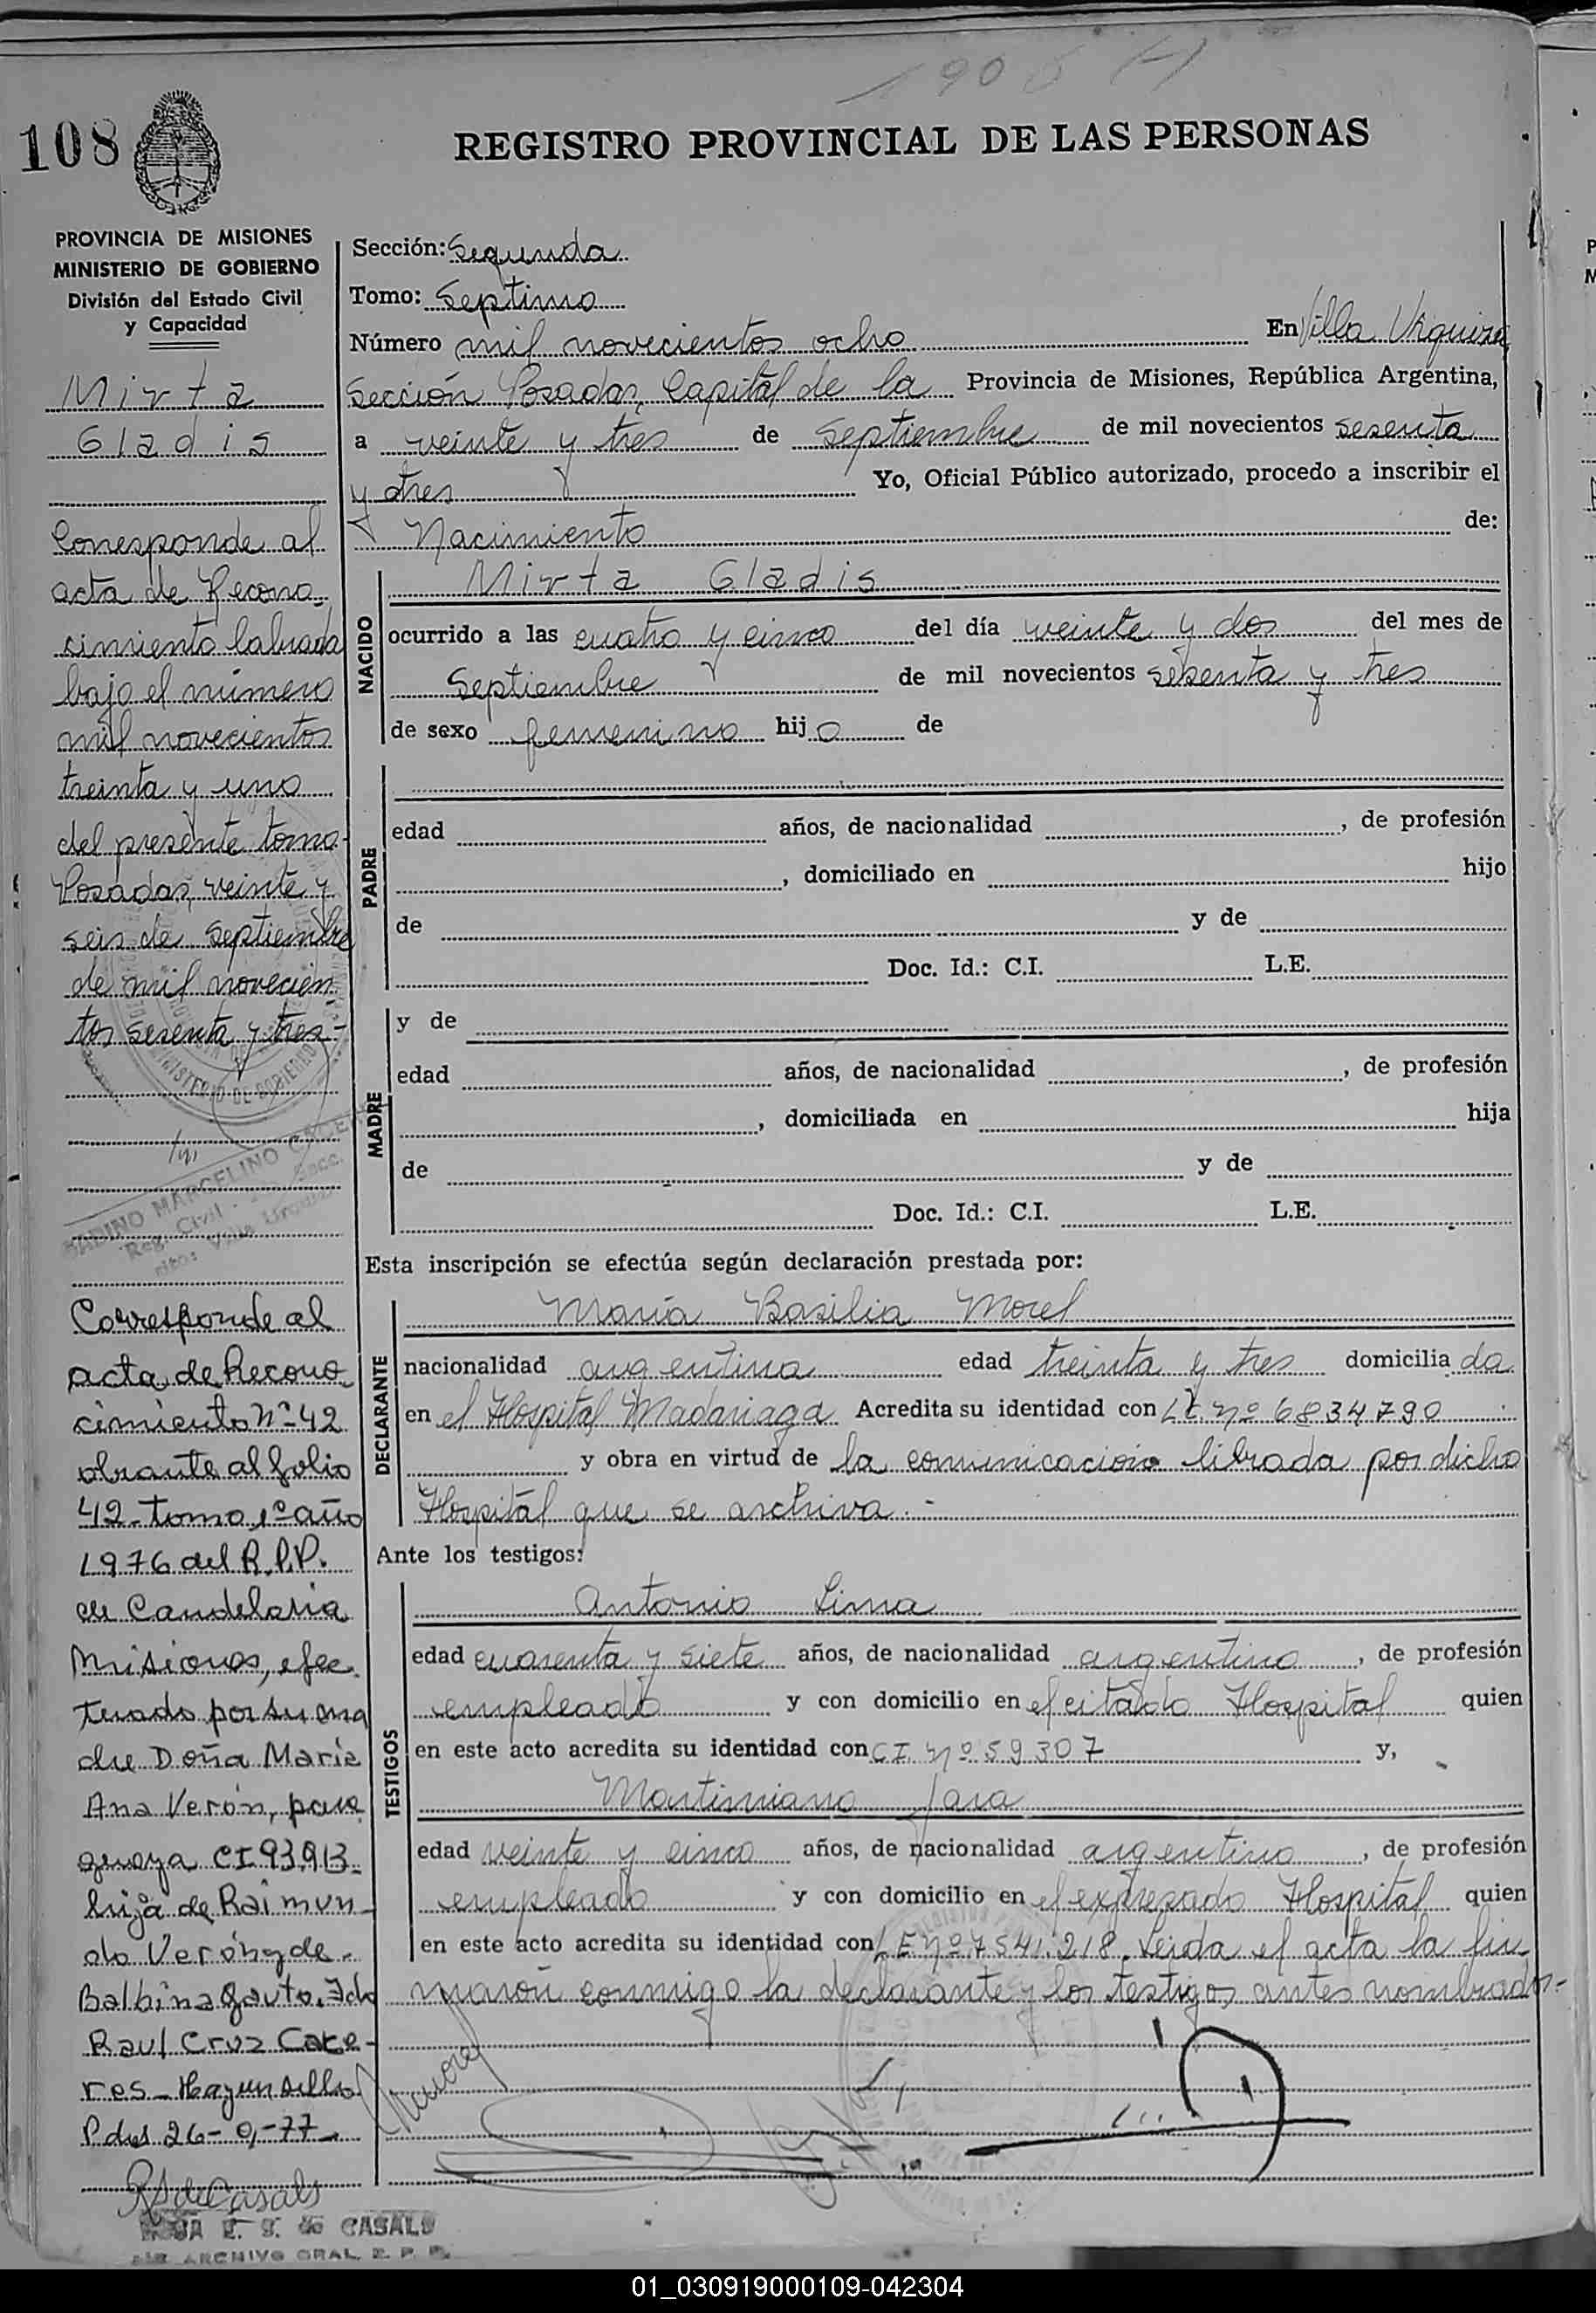 108
REGISTRO PROVINCIAL DE LAS PERSONAS
PROVINCIA DE MISIONES
MINISTERIO DE GOBIERNO
División del Estado Civil
y Capacidad
Mirta
Gladis
Corresponde al
acta de Recono-
cimiento labrada
bajo el número
mil novecientos
treinta y uno
del presente tomo-
Posadas, veinte y
seis de Septiembre
de mil novecien
tos sesenta y tres-
Corresponde al
acta de Recono-
cimiento Nº 42
obrante al folio
42- tomo 1º año
1976 del R.P.P.
de Candelaria
Misiones, efec
tuado por su ma
dre Doña María
Ana Verón, para
guaya CI 93.913-
hija de Raimun-
do Verón y de-
Balbina Gauto.
Raul Cruz Cace-
res- Hay un sello
Pdas 26- -77-
RS de Casals
E. S. de CASALS
ARCHIVO GRAL. R. P. P.
Sección: Segunda
Tomo: Septimo
Número mil novecientos ocho En Villa Urquiza
Sección Posadas, Capital de la Provincia de Misiones, República Argentina,
a veinte y tres de Septiembre de mil novecientos sesenta
y tres Yo, Oficial Público autorizado, procedo a inscribir el
Nacimiento de:
NACIDO
Mirta Gladis
ocurrido a las cuatro y cinco del día veinte y dos del mes de
Septiembre de mil novecientos sesenta y tres
de sexo femenino hija de
PADRE
edad años, de nacionalidad , de profesión
, domiciliado en hijo
de y de
Doc. Id.: C.I. L.E.
MADRE
y de
edad años, de nacionalidad , de profesión
, domiciliada en hija
de y de
Doc. Id.: C.I. L.E.
Esta inscripción se efectúa según declaración prestada por:
DECLARANTE
María Basilia Morel
nacionalidad argentina edad treinta y tres domiciliada
en el Hospital Madariaga Acredita su identidad con LC. nº 6834790
y obra en virtud de la comunicación librada por dicho
Hospital que se archiva.-
Ante los testigos:
TESTIGOS
Antonio Lima
edad cuarenta y siete años, de nacionalidad argentino, de profesión
empleado y con domicilio en el citado Hospital quien
en este acto acredita su identidad con CI nº 59307 y,
Martimiano Jara
edad veinte y cinco años, de nacionalidad argentino, de profesión
empleado y con domicilio en el expresado Hospital quien
en este acto acredita su identidad con LE nº 7541.218. Leida el acta la fir-
maron conmigo la declarante y los testigos antes nombrados.-
01_030919000109-042304